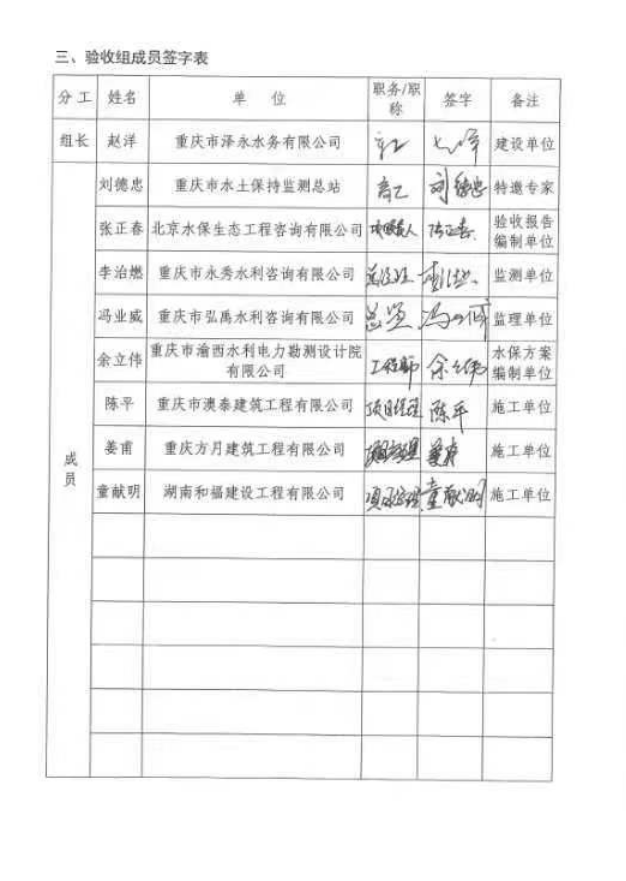 三、验收组成员签字表
分工 姓名 单 位 职务/职称 签字 备注
组长 赵洋 重庆市泽永水务有限公司 建设单位
成员
刘德忠 重庆市水土保持监测总站 高工 刘德忠 特邀专家
张正春 北京水保生态工程咨询有限公司 张正春 验收报告编制单位
李治燃 重庆市永秀水利咨询有限公司 监测单位
冯业威 重庆市弘禹水利咨询有限公司 总监 冯业威 监理单位
余立伟 重庆市渝西水利电力勘测设计院有限公司 工程师 余立伟 水保方案编制单位
陈平 重庆市澳泰建筑工程有限公司 项目经理 陈平 施工单位
姜甫 重庆方月建筑工程有限公司 项目经理 姜甫 施工单位
童献明 湖南和福建设工程有限公司 项目经理 童献明 施工单位